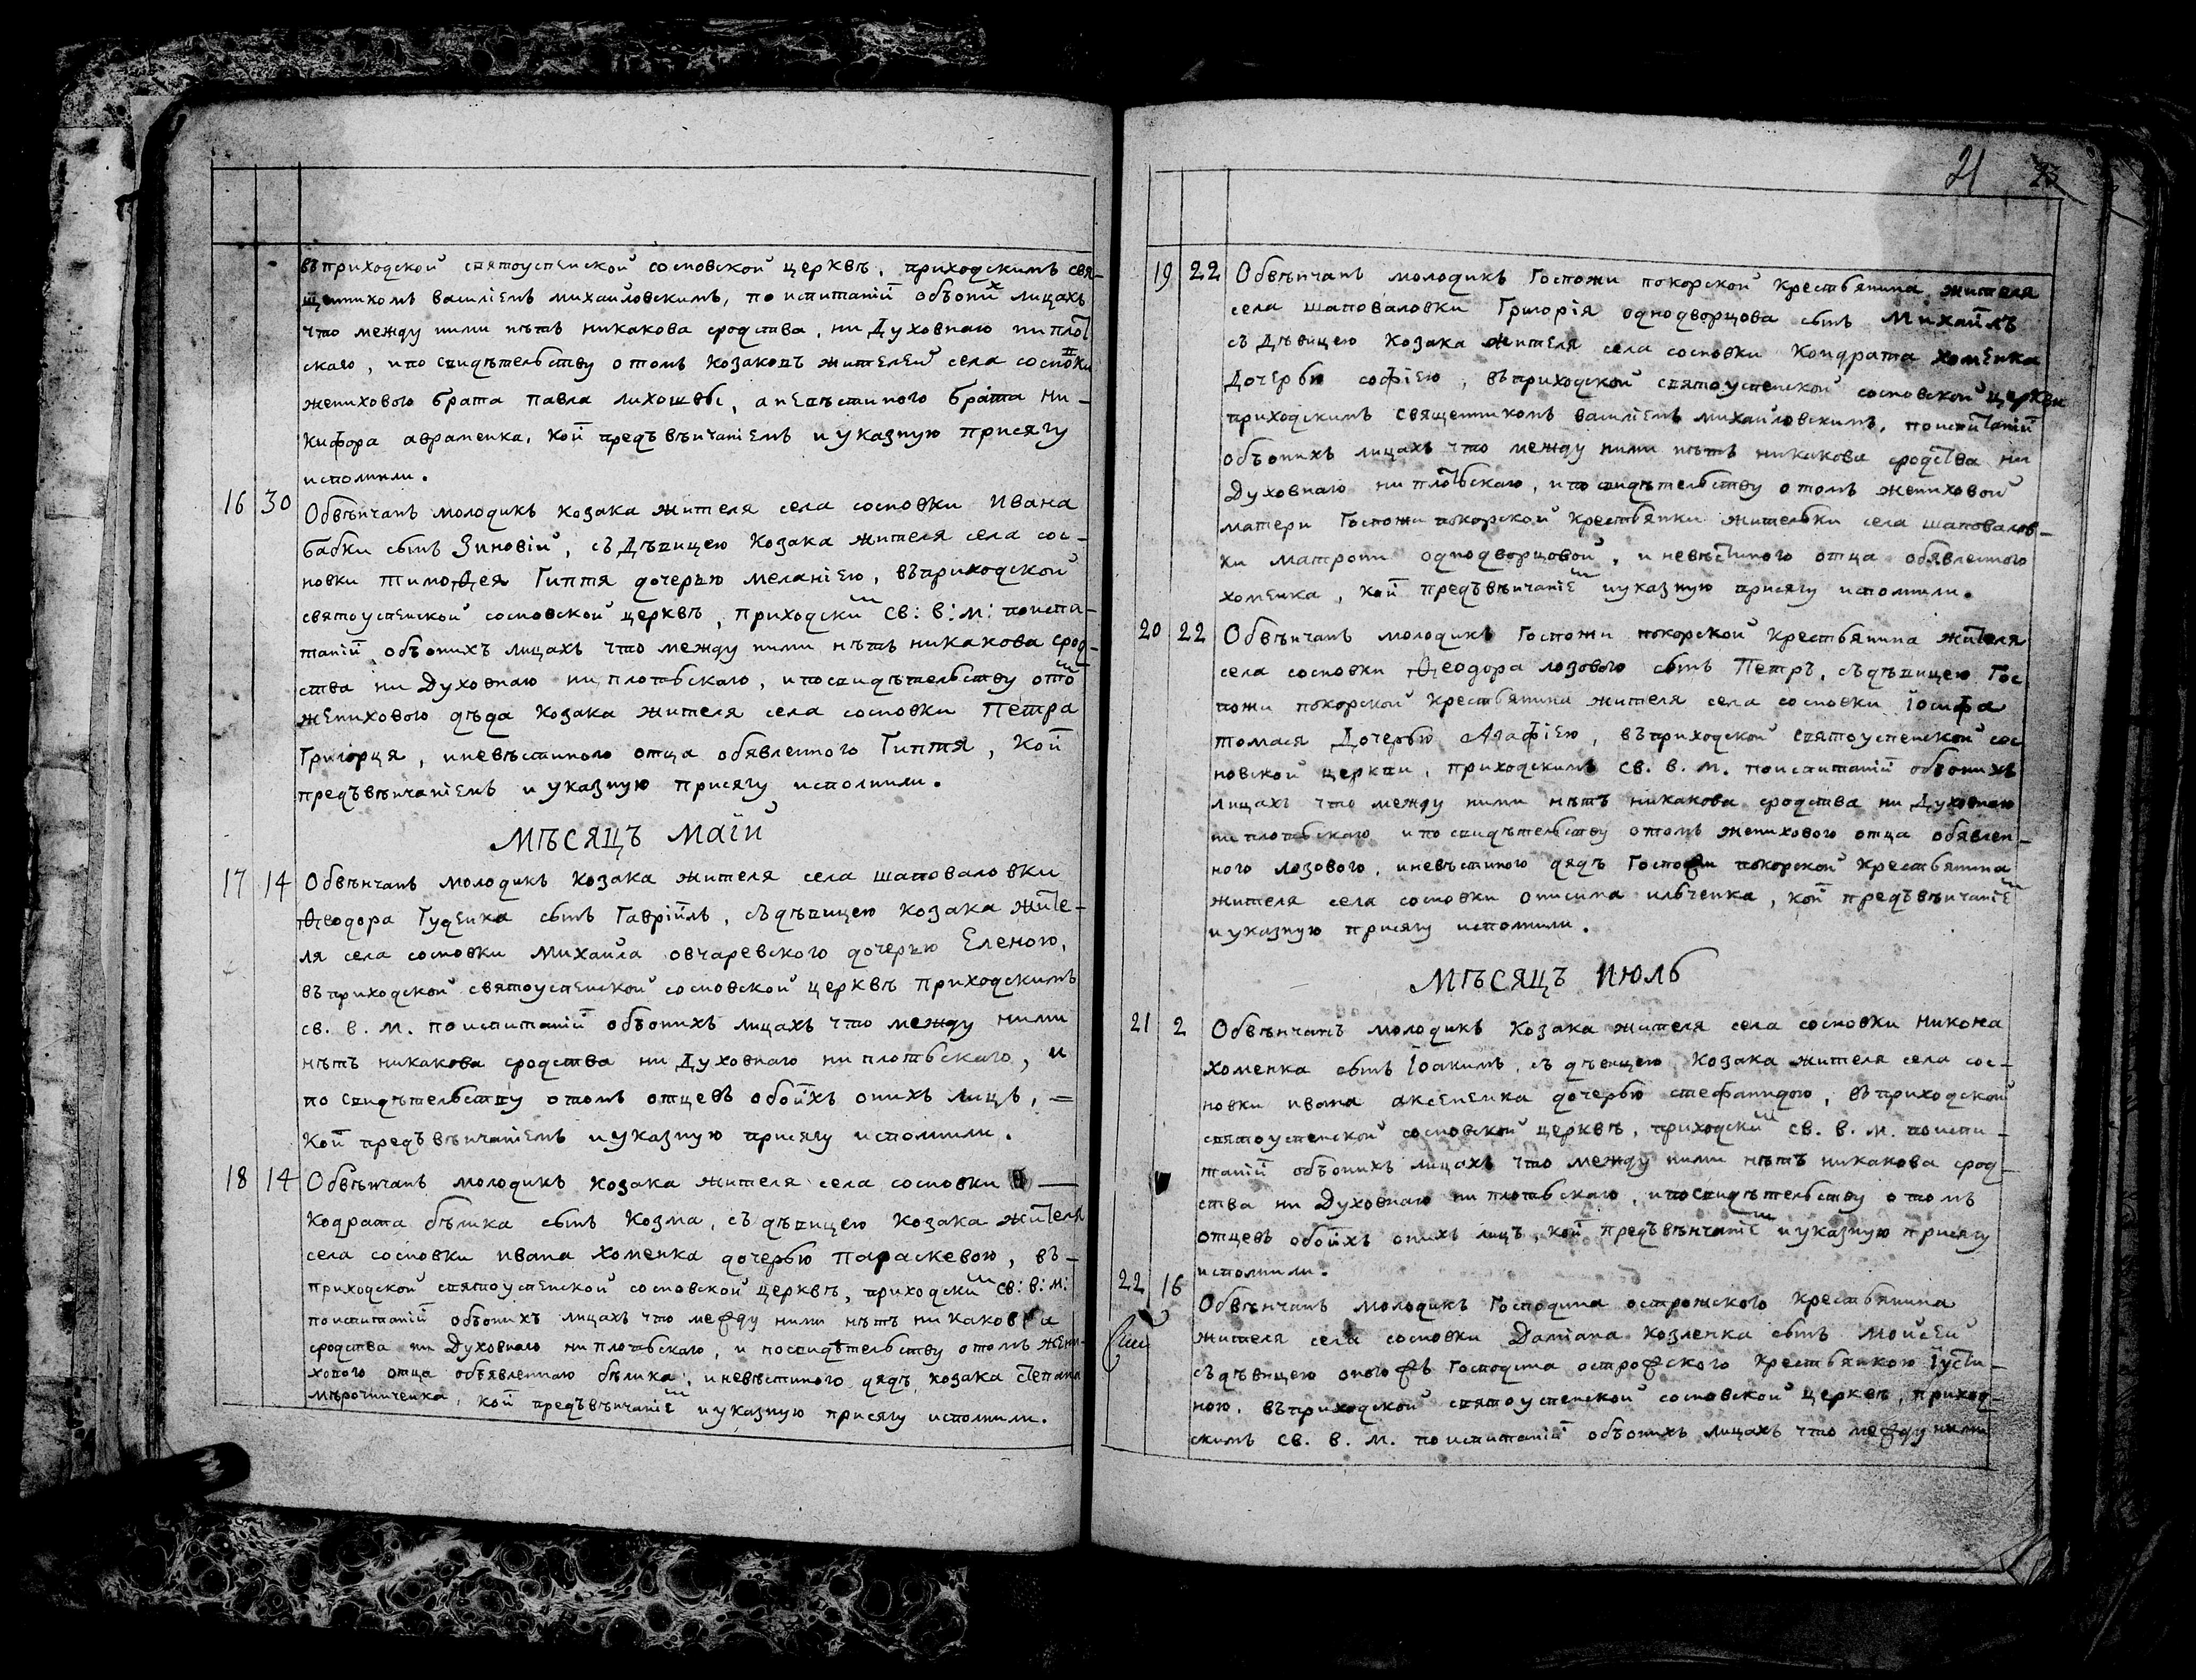 въ приходской святоуспенской сосновской церквѣ, приходскимъ свя-
щенникомъ василіемъ михайловскимъ, по испитаніи объ оних лицахъ
что между ними нѣтъ никакова сродства, ни Духовнаго ни плот
скаго, и по свидѣтельству о томъ козаковъ жителей села сосновки
женихового брата павла лихошвы, а невѣстиного брата Ни-
кифора авраменка, кой предъ вѣнчаніемъ и указную присягу
исполнили.
16 30 Обвѣнчанъ молодикъ козака жителя села сосновки Ивана
бабки сынъ Зиновій, съ Дѣвицею козака жителя села сос-
новки тимоѳея Гиптя дочерью меланіею, въ приходской
святоуспенской сосновской церквѣ, приходским св: в: м: по испи-
таніи объ онихъ лицахъ что между ними нѣтъ никакова срод-
ства ни Духовнаго ни плотьскаго, и по свидѣтельству о том
женихового дѣда козака жителя села сосновки Петра
Григорця, и невѣстиного отца обявленного Гиптя, кой
предъ вѣнчаніемъ и указную присягу исполнили.
МѢСЯЦЪ МАІЙ
17 14 Обвѣнчанъ молодикъ козака жителя села шаповаловки
Ѳеодора Гуденка сынъ Гавріилъ, съ дѣвицею козака жите-
ля села сосновки михаила овчаревского дочерью Еленою,
въ приходской святоуспенской сосновской церквѣ приходскимъ
св. в. м. по испитаніи объ онихъ лицахъ что между ними
нѣтъ никакова сродства ни Духовнаго ни плотьскаго, и
по свидѣтельству о томъ отцевъ обоихъ онихъ лицъ, =
Кой предъ вѣнчаніемъ и указную присягу исполнили.
18 14 Обвѣнчанъ молодикъ козака жителя села сосновки —
Кодрата бѣлика сынъ Козма, съ дѣвицею козака жителя
села сосновки ивана хоменка дочерью Параскевою, въ-
приходской святоуспенской сосновской церквѣ, приходским св: в: м:
по испитаніи объ онихъ лицахъ что между ними нѣтъ никакова
сродства ни Духовнаго ни плотьскаго, и по свидѣтельству о томъ жени-
хового отца объявленнаго бѣлика, и невѣстиного дядъ козака степана
мѣрочниченка, кой предъ вѣнчаніем и указную присягу исполнили.
21 23
19 22 Обвѣнчанъ молодикъ Госпожи покорской крестьянина жителя
села шаповаловки Григорія однодворцова сынъ Михаилъ
съ Дѣвицею козака жителя села сосновки Кондрата хоменка
Дочерью софіею, въ приходской святоуспенской сосновской церкви
приходскимъ священникомъ василіемъ михайловскимъ, по испитаніи
объ онихъ лицахъ что между ними нѣтъ никакова сродства ни
Духовнаго ни плотьскаго, и по свидѣтельству о томъ жениховой
матери Госпожи покорской крестьянки жительки села шаповалов-
ки матрони однодворцовой, и невѣстиного отца обявленного
хоменка, кой предъ вѣнчаніем и указную присягу исполнили.
20 22 Обвѣнчанъ молодикъ Госпожи покорской крестьянина жителя
села сосновки Ѳеодора лозового сынъ Петръ, съ дѣвицею Гос
пожи покорской крестьянина жителя села сосновки іосифа
томася Дочерью Агафіею, въ приходской святоуспенской сос
новской церкви, приходскимъ св. в. м. по испитаніи объ онихъ
лицахъ что между ними нѣтъ никакова сродства ни Духовнаго
ни плотьскаго и по свидѣтельству о томъ женихового отца обявлен-
ного лозового, и невѣстиного дядъ Госпожи покорской крестьянина
жителя села сосновки онисима ильченка, кой предъ вѣнчаніем
и указную присягу исполнили.
МѢСЯЦЪ ИЮЛЬ
21 2 Обвѣнчанъ молодикъ козака жителя села сосновки никона
хоменка сынъ Іоакимъ, съ дѣвицею козака жителя села сос-
новки ивана аксененка дочерью стефанидою, въ приходской
святоуспенской сосновской церквѣ, приходским св. в. м. по испи-
таніи объ онихъ лицахъ что между ними нѣтъ никакова срод-
ства ни Духовнаго ни плотьскаго, и по свидѣтельству о томъ
отцевъ обоихъ онихъ лицъ, кой предъ вѣнчаніем и указную присягу
исполнили.
22 16 Обвѣнчанъ молодикъ Господина острожского крестьянина
жителя села сосновки Даміана козленка сынъ Мойсей
съ дѣвицею оногожъ Господина острожского крестьянкою Іусти-
ною, въ приходской святоуспенской сосновской церквѣ, приход-
скимъ св. в. м. по испитаніи объ онихъ лицахъ что между ними